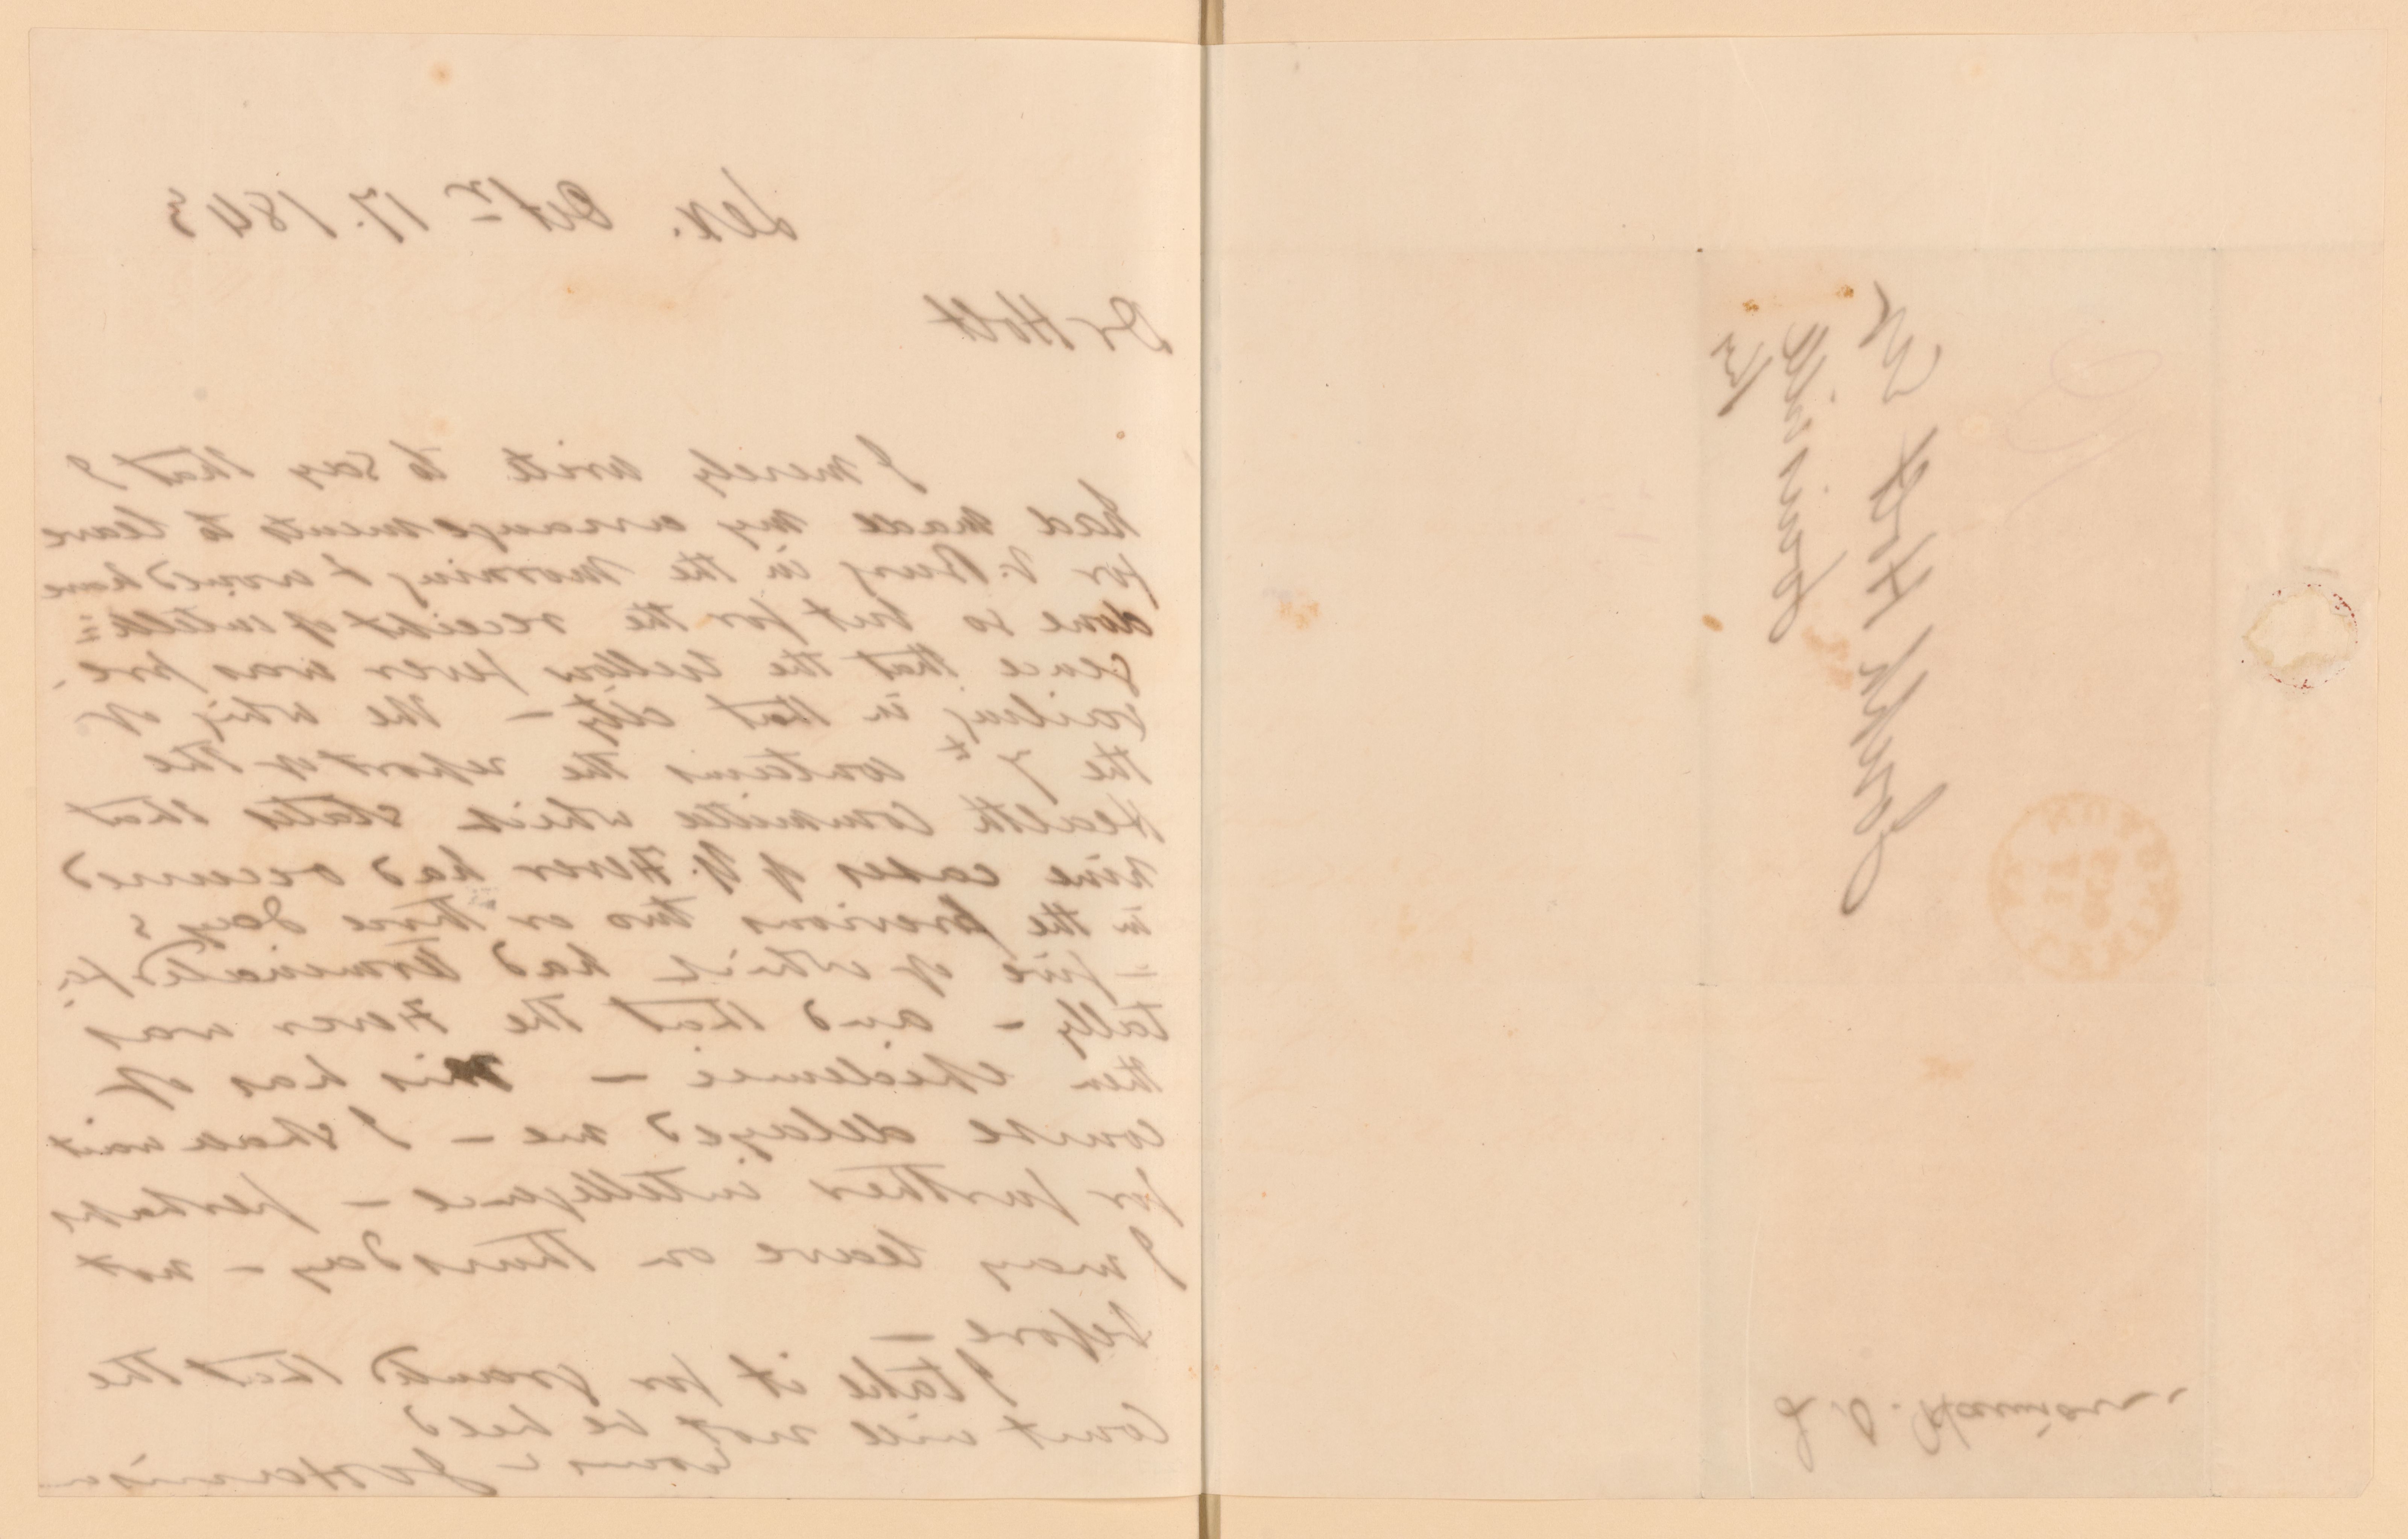 Lex. Octr 17. 1843
Dr Holt
I merely write to say that I
had made my arrangements to leave
for V. Burg in the morning & would have
done so but for the receipt of intelli=
gence that the yellow fever was pre-
vailing in that city - The Whig of
the 7th contains the report of the
Health Committee which states that
nine cases of Y. Fever had occurred
in the previous two or three days
- five of which had terminated fa-
tally - and that the Fever was
then epidemic - This has of
course delayed me - I shall wait
for further intelligence - perhaps
I may leave on Thursday - not
before -
I take it for granted that the
Court will not be held
Yours Jas Harrison
Joseph Holt
Ky
J. O. Harrison